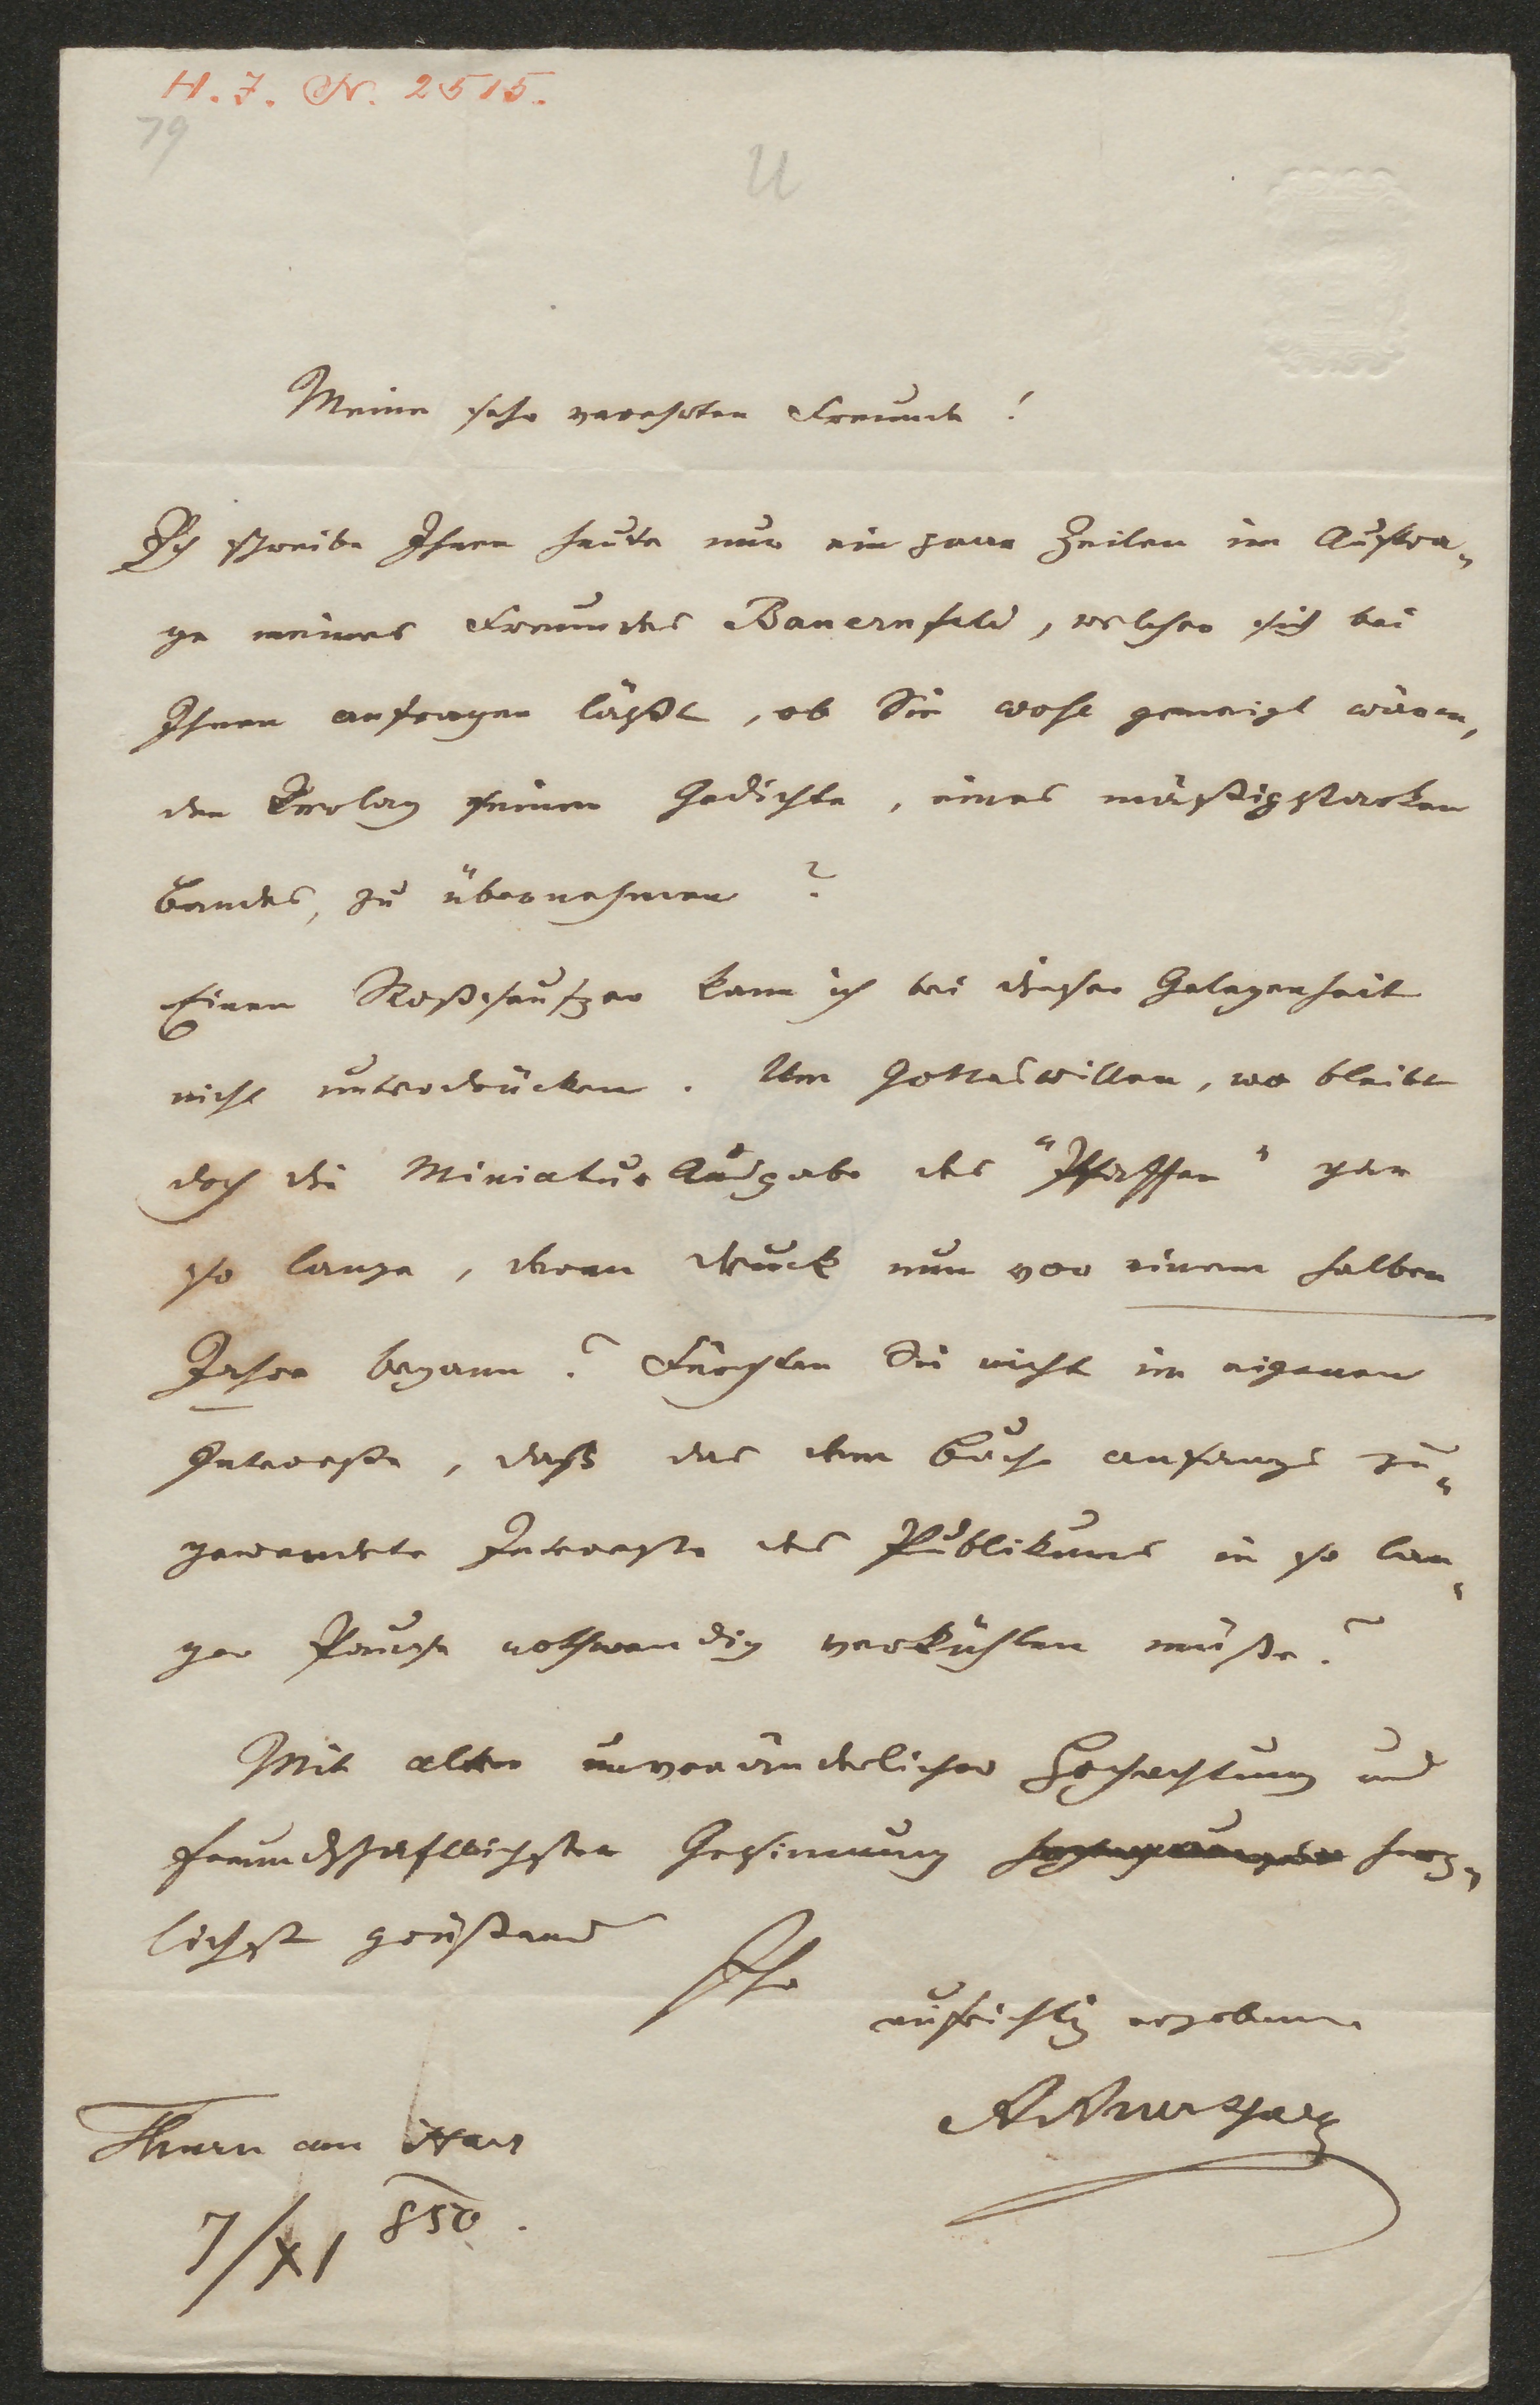 H. I. N. 2515.
79
U
Meine sehr verehrten Freunde!
Ich schreibe Ihnen heute nur ein paar Zeilen im Auftra-
ge meines Freundes Bauernfeld, welcher sich bei
Ihnen anfragen läßt, ob Sie wohl geneigt wären,
den Verlag seiner Gedichte, eines mäßigstarken
Bandes, zu übernehmen?
Einen Stoßseufzer kann ich bei dieser Gelegenheit
nicht unterdrücken. Um Gotteswillen, wo bleibt
doch die Miniatur Ausgabe des "Pfaffen" gar
so lange, deren Druck nun vor einem halben
Jahre begann? Fürchten Sie nicht im eigenen
Interesse, daß das dem Buche anfangs zu-
gewendete Interesse des Publikums in so lan-
ger Pause nothwendig verkühlen müße?
Mit alter unveränderlicher Hochachtung und
freundschaftlichster Gesinnung herz-
lichst grüßend
Ihr
aufrichtig ergebener
AAuersperg
Thurn am Hart
7/XI 850.